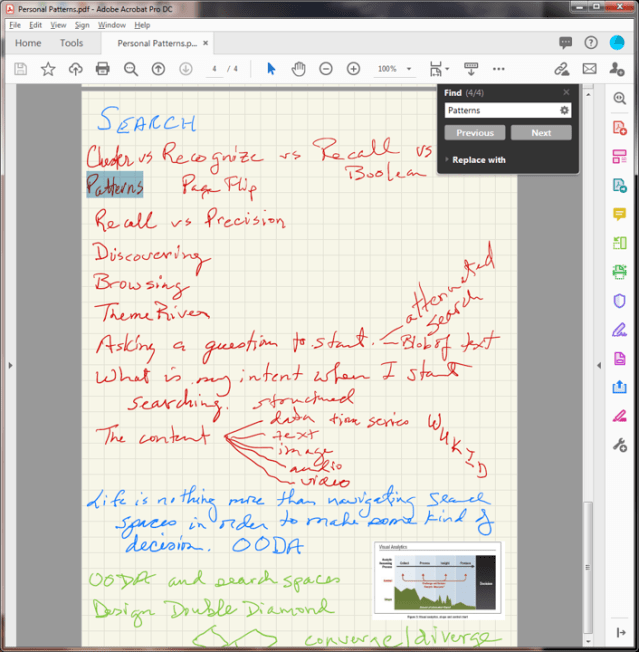 Personal Patterns.pdf - Adobe Acrobat Pro DC
File Edit View Sign Window Help
Home Tools Personal Patterns.p... ×
4 / 4 100%
Find (4/4)
Patterns
Previous Next
Replace with
SEARCH
Cluster vs Recognize vs Recall vs
Boolean
Patterns Page Flip
Recall vs Precision
Discovering
Browsing
ThemeRiver
attenuated
search
Asking a question to start. – Blob of text
What is my intent when I start
searching. structured
The content data time series WUKID
text
image
audio
video
Life is nothing more than navigating search
spaces in order to make some kind of
decision. OODA
Visual Analytics
Decision
OODA and search spaces
Design Double Diamond
converge/diverge